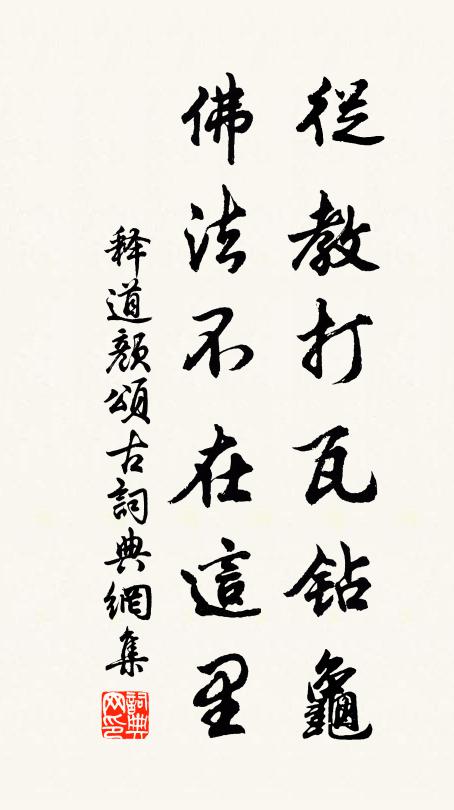 從教打瓦钻龜
佛法不在這里
释道顏頌古詞典網集
詞典网印